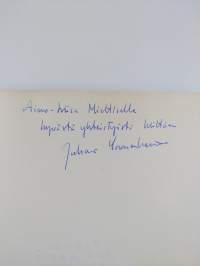 Aino-Maisa Miettisellä
hyvästä yhteistyöstä kiittäen
Juhani